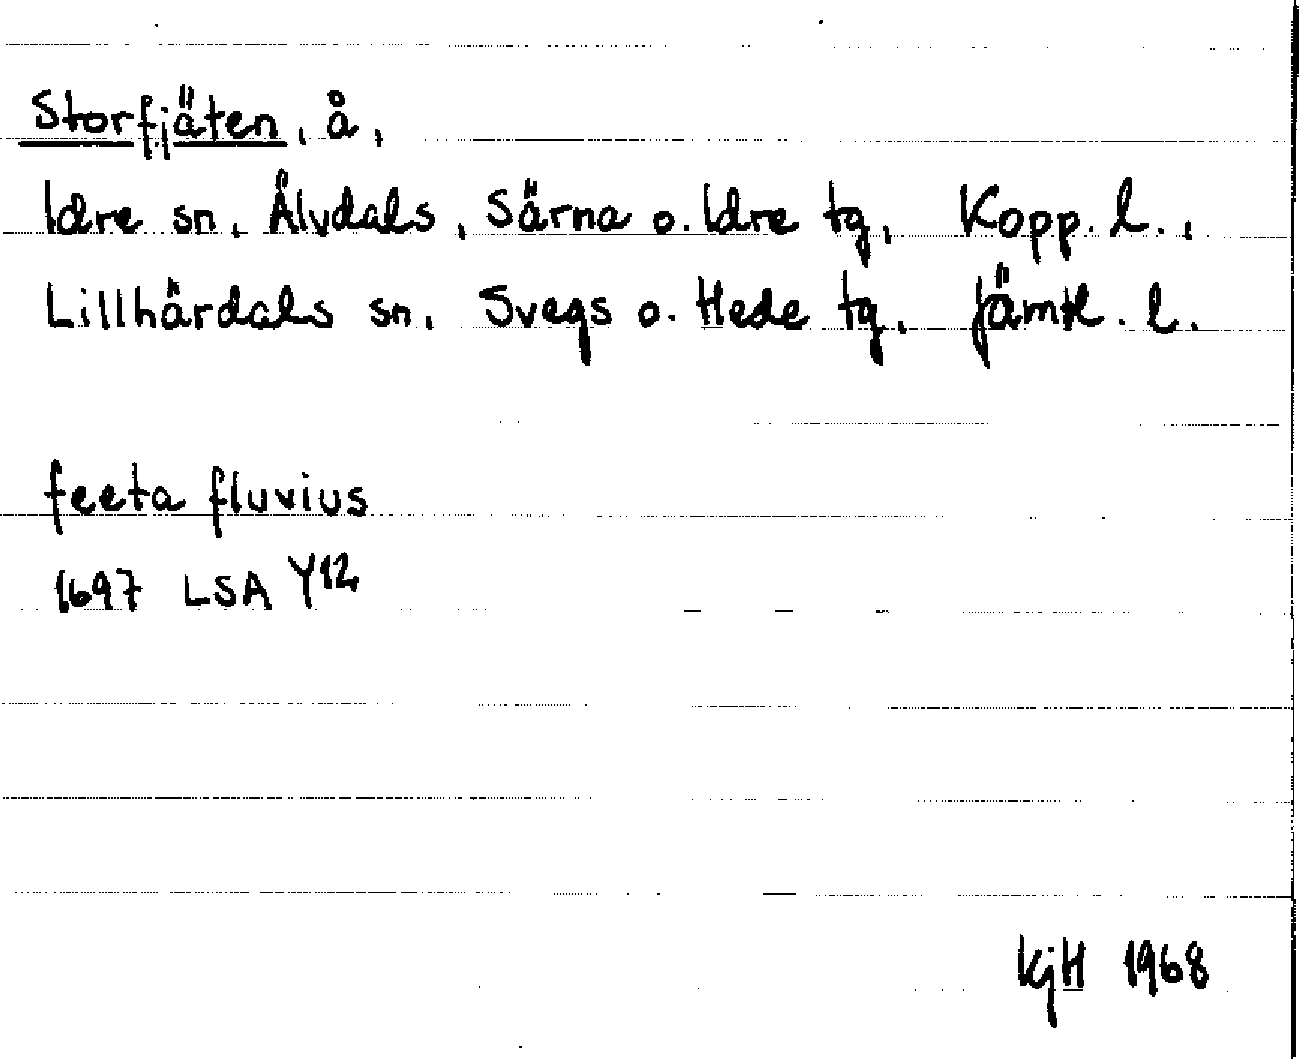 Storfjäten, å,
Idre sn, Älvdals, Särna o. Idre tg, Kopp. l.,
Lillhärdals sn, Svegs o. Hede tg, Jämtl. l.
feeta fluvius
1697 LSA Y12
KjH 1968